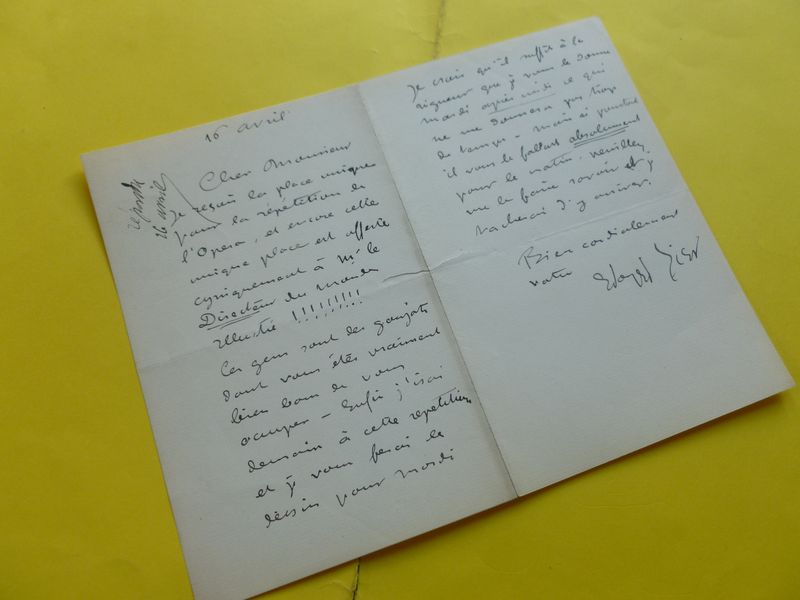 16 avril
répondu
16 avril
Cher Monsieur
Je reçois la place unique
pour la répétition de
l'Opera, et encore cette
unique place est offerte
cyniquement à Mr le
Directeur du Monde
illustré !!!!!!!!!
Ces gens sont des goujats
dont vous êtes vraiment
bien bon de vous
occuper – Enfin j'irai
demain à cette répétition
et j'y vous ferai le
dessin pour mardi
Je crois qu'il suffit à la
rigueur que je vous le donne
mardi après midi ce qui
ne me donnera pas trop
de temps – mais si pourtant
il vous le fallait absolument
pour le matin. veuillez
me le faire savoir et je
tacherai d'y arriver.
Bien cordialement
votre